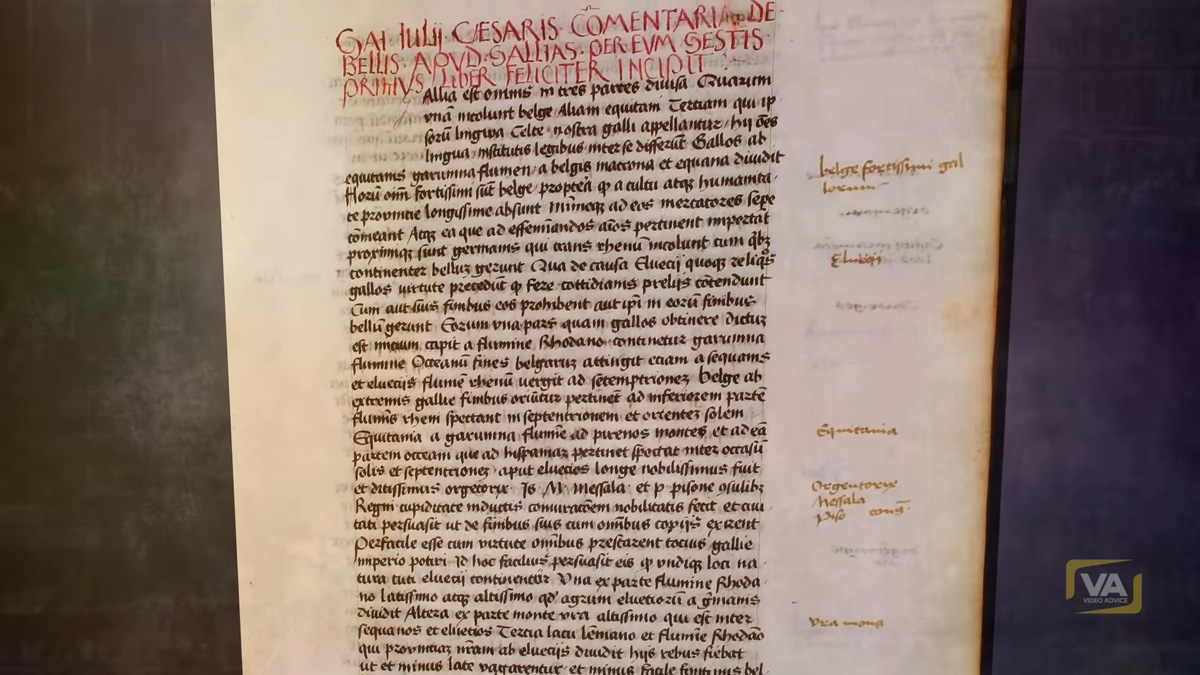 GAI IULIJ CÆSARIS CŌMENTARIA DE
BELLIS APVD GALLIAS PER EVM GESTIS
PRIMVS LIBER FELICITER INCIPIT
Allia est omnis in tres partes diuisa Quarum
vnā incolunt belge Aliam equitani Tertiam qui ip
sorū lingwa Celte nostra galli appellantur hij oēs
lingua institutis legibus inter se differūt Gallos ab
equitanis garunna flumen a belgis matrona et equana diuidit
Horū omī fortissimi sūt belge propteā ꝙ a cultu atqꝫ humanita
te prouintie longissime absunt Minimeqꝫ ad eos mercatores sepe
cōmeant Atqꝫ ea que ad effeminandos aīos pertinent inportāt
proximiqꝫ sunt germanis qui trans rhenū incolunt cum qͥbꝫ
continenter belluꝫ gerunt Qua de causa Eluecij quoqꝫ reliqͦs
gallos virtute precedūt ꝙ fere cottidianis prelijs cōtendunt
Cum aut suis finibus eos prohibent aut ipī in eorū finibus
bellū gerunt Eorum vna pars quam gallos obtinere dictuꝫ
est initium capit a flumine Rhodano continetur garunna
flumine Oceanū fines belgaruꝫ attingit eciam a sequanis
et eluecijs flumē rhenū vergit ad setemptrionez Belge ab
extremis gallie finibus oriūtur pertinēt ad inferiorem partē
flumīs rheni spectant in septentrionem et orientez solem
Equitania a garunna flumīe ad pirenos montes et ad eā
partem occeani que ad hispaniaꝫ pertinet spectat inter occasū
solis et septentrionez aput eluecios longe nobilissimus fuit
et ditissimus orgetorix Is M Messala et p pisone ꝯsulibꝫ
Regni cupiditate inductis coniuracōem nobilitatis fecit et ciui
tati persuasit ut de finibus suis cum omībus copijs exirent
Perfacile esse cum virtute omībus prestarent tocius gallie
imperio potiri Id hoc facilius persuasit eis ꝙ vndiqꝫ loci na
tura tuti eluecij continentur Vna ex parte flumine Rhoda
no latissimo atqꝫ altissimo qd agrum eluetiorū a gͥmanis
diuidit Altera ex parte monte vra altissimo qui est inter
sequanos et eluetios Tertia lacu lemano et flumīe Rhodāo
qui prouintiaꝫ nrām ab eluecijs diuidit hijs rebus fiebat
ut et minus late vagarentur et minus facile finitimis bel
belge fortissimi gal
lorum
Eluecij
Equitania
Orgentorix
Messala
Piso
Vra mons
VA
VIDEO ADVICE